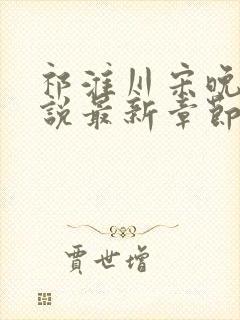 祁淮川宋晚
說最新章節
賈世增